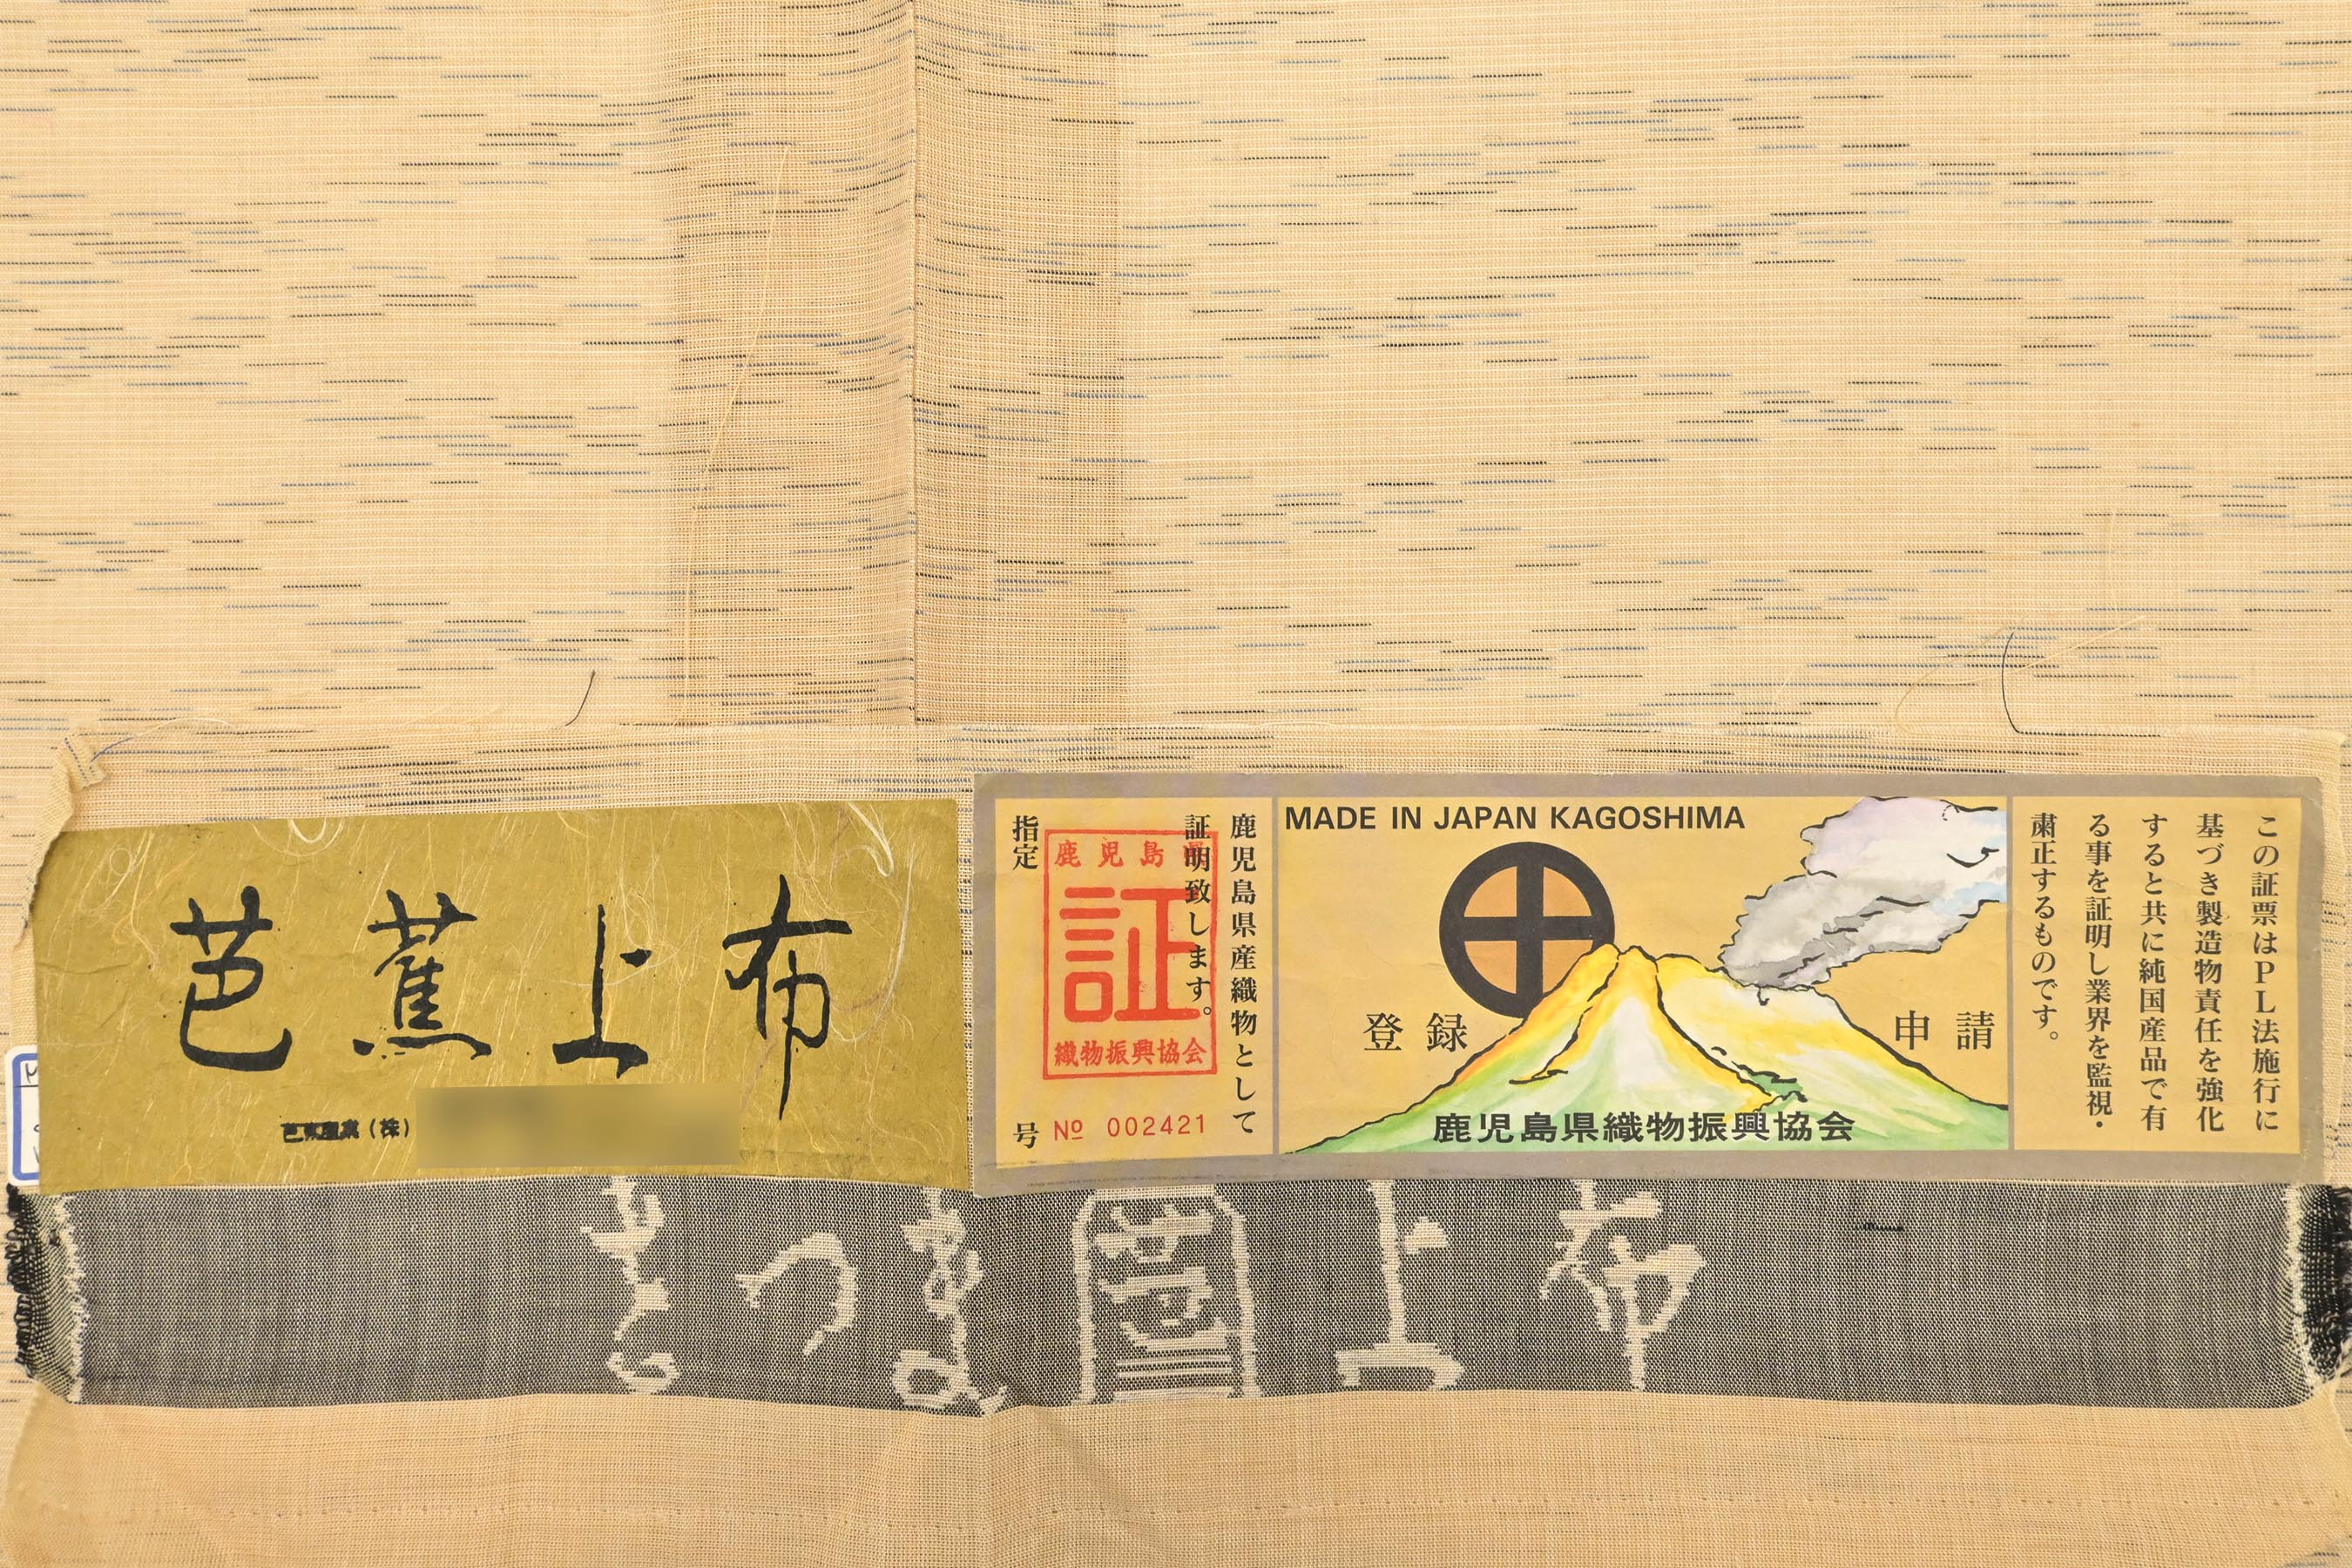 芭蕉上布
(株)
指定
鹿児島県
証
織物振興協会
号 № 002421
鹿児島県産織物として
証明致します。
MADE IN JAPAN KAGOSHIMA
登録
申請
鹿児島県織物振興協会
この証票はPL法施行に
基づき製造物責任を強化
すると共に純国産品で有
る事を証明し業界を監視・
粛正するものです。
上布